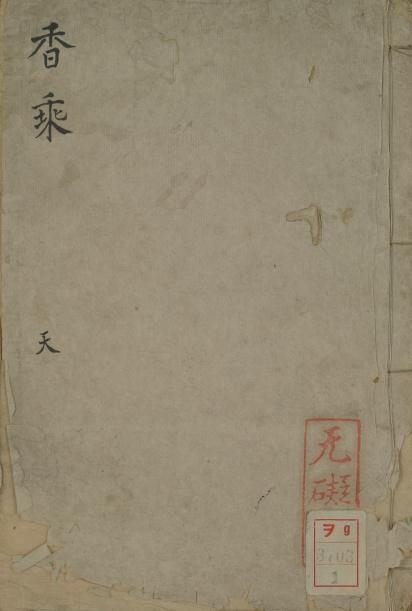 香乘
天
无礙
ヲ 9
3103
1